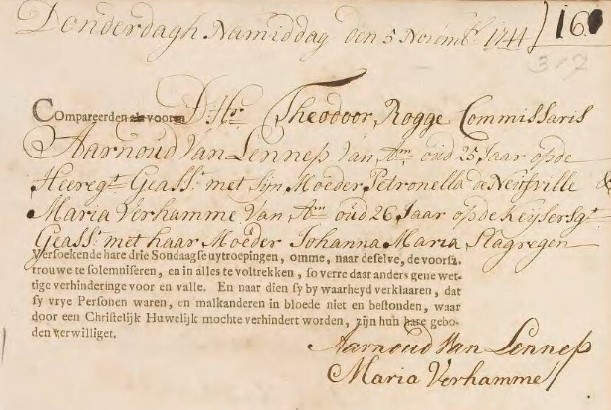 Donderdagh Namiddag den 5 Novemb: 1744
16
317
Compareerden als vooren D'Hr: Theodoor Rogge Commissaris
Aarnoud Van Lennep Van Am oud 25 Jaar op de
Heeregt. Geasst. met Sijn Moeder Petronella de Neufville &
Maria Verhamme Van Am oud 26 Jaar op de Keijsersgt.
Geasst. met haar Moeder Johanna Maria Slagregen
Versoekende hare drie Sondaagse uytroepingen, omme, naar deselve, de voorsz.
trouwe te solemniseren, en in alles te voltrekken, so verre daar anders gene wet-
tige verhinderinge voor en valle. En naar dien sy by waarheyd verklaaren, dat
sy vrye Personen waren, en malkanderen in bloede niet en bestonden, waar
door een Christelijk Huwelijk mochte verhindert worden, zijn hun hare gebo-
den verwilliget.
Aarnoud Van Lennep
Maria Verhamme